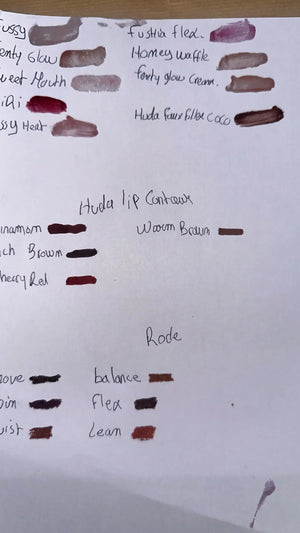 ussy
enty Glow
weet Mouth
iRi
ssy Heat
flex.
Honey Waffle
fenty glow Cream.
Huda Faux Filler COCO
Huda lip Contour
innamon
ch Brown
herry Red
Warm Brown
Rode
move
balance
pin
flex
wist
Lean